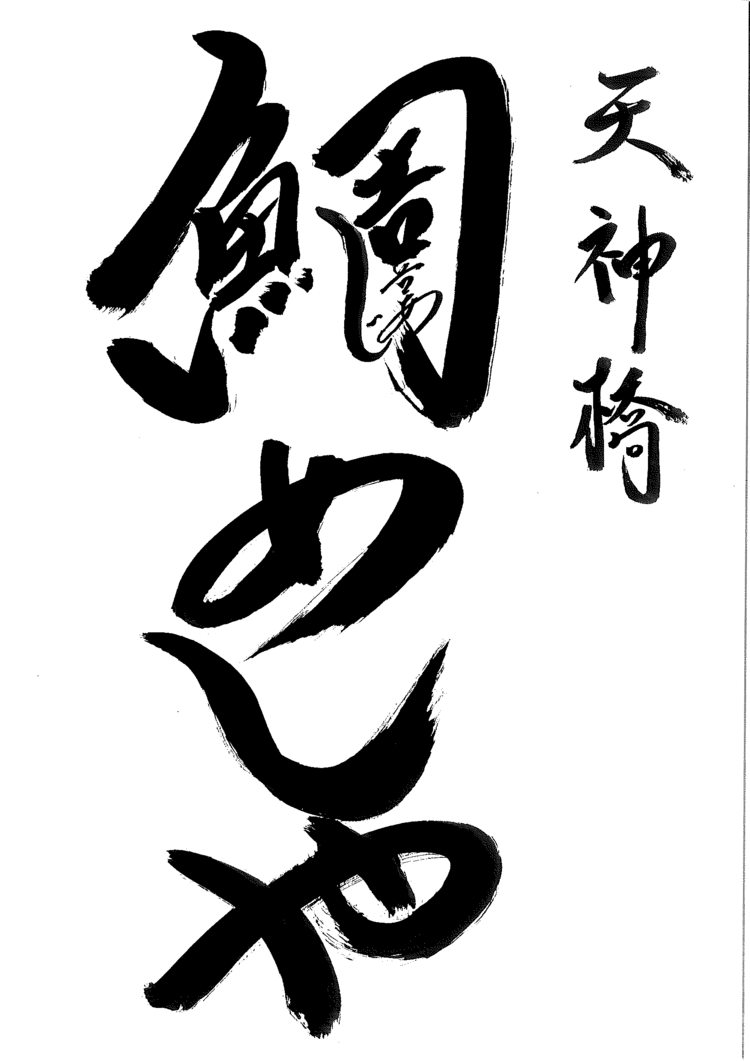 天神橋
鯛めしや